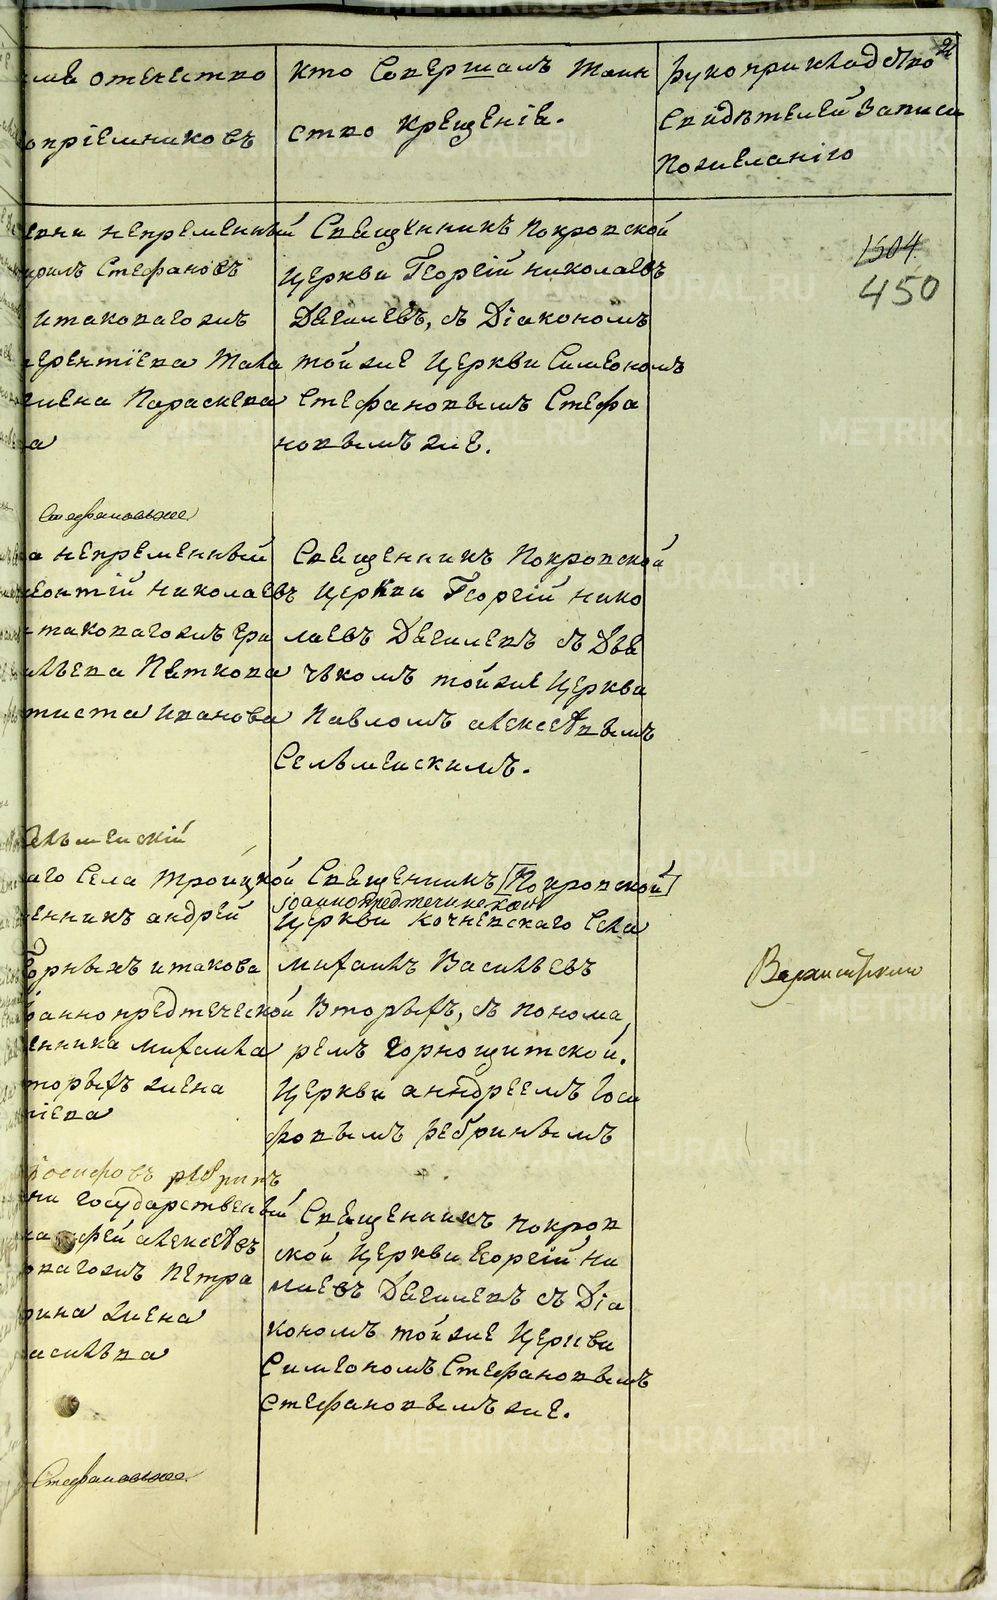 мя отечество
оприемниковъ
Кто Совершалъ Таин
ство крещенiе.
Рукоприкладство
Свидѣтелей Записи
Пожеланiю
1504
450
непременный
Стефановъ
итаковагожъ
ерентiева
жена Параскева
а
Священникъ Покровской
церкви Георгiй Николаевъ
Дягилевъ, съ Дiакономъ
тойже Церкви Симеономъ
Стефановымъ Стефа
новымъ же.
Стефановыже
а непременный
еонтiй Николаевъ
таковагожъ
Пяткова
Иванова
Священникъ Покровской
церкви Георгiй Нико
лаевъ Дягилевъ съ Дья
чкомъ тойже Церкви
Павломъ Алексѣевымъ
Сельменскимъ.
ельменскiй
аго Села Троицкой
енникъ Андрей
Горныхъ итакова
аннопредтеческой
енника Михаила
торыхъ жена
тiева
Священникъ [Покровской]
Iоаннопредтечинской
Церкви Кочневскаго Села
Михаилъ Васильевъ
Вторыхъ, съ понома
ремъ Горнощитской
Церкви Андреемъ Iоси
фовымъ Ребринымъ
Верхнитскаго
Iосифовъ рябринъ
ни Государственный
фей Алексѣевъ
овагожъ Петра
рина жена
асильва
Священникъ Покров
ской Церкви Георгiй Ни
лаевъ Дягилевъ съ Дiа
кономъ тойже Церкви
Симеономъ Стефановымъ
Стефановымъ же.
Стефановыже